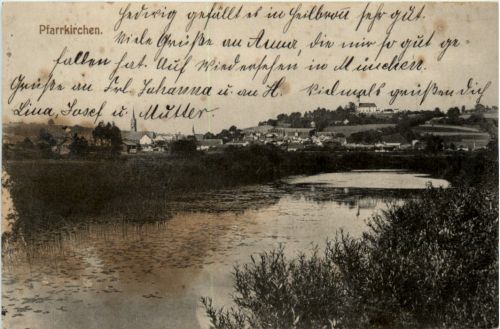 Hedwig gefällt es in Heilbron̄ sehr gut.
Pfarrkirchen.
Viele Grüße an Anna, die mir so gut ge
fallen hat. Auf Wiedersehen in München.
Grüße an Frl. Johanna u. an H. Vielmals grüßen dich
Lina, Josef u. Mutter